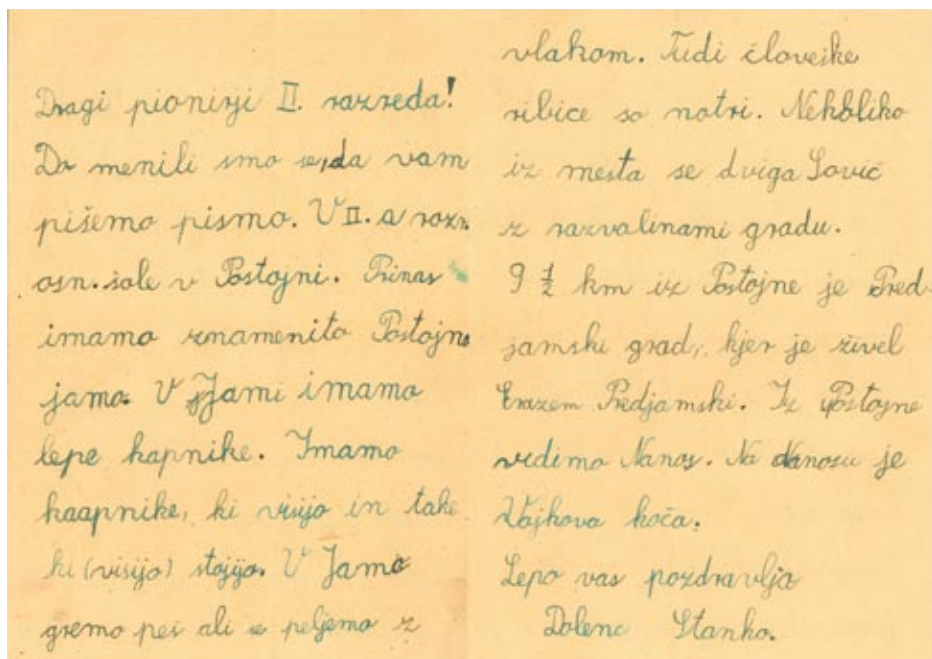 Dragi pionirji II. razreda!
Do menili smo se, da vam
pišemo pismo. V II. a razr.
osn. šole v Postojni. Prinas
imamo znamenito Postojno
jamo. V jJami imamo
lepe kapnike. Imamo
kaapnike, ki visijo in take
ki (visijo) stojijo. V Jamo
gremo peš ali se peljemo z
vlakom. Tudi človeške
ribice so notri. Nekoliko
iz mesta se dviga Sovič
z razvalinami gradu.
9 1/2 km iz Postojne je Pred-
jamski grad, kjer je živel
Erazem Predjamski. Iz Postojne
vidimo Nanos. Na Nanosu je
Vojkova koča.
Lepo vas pozdravlja
Dolenc Stanko.